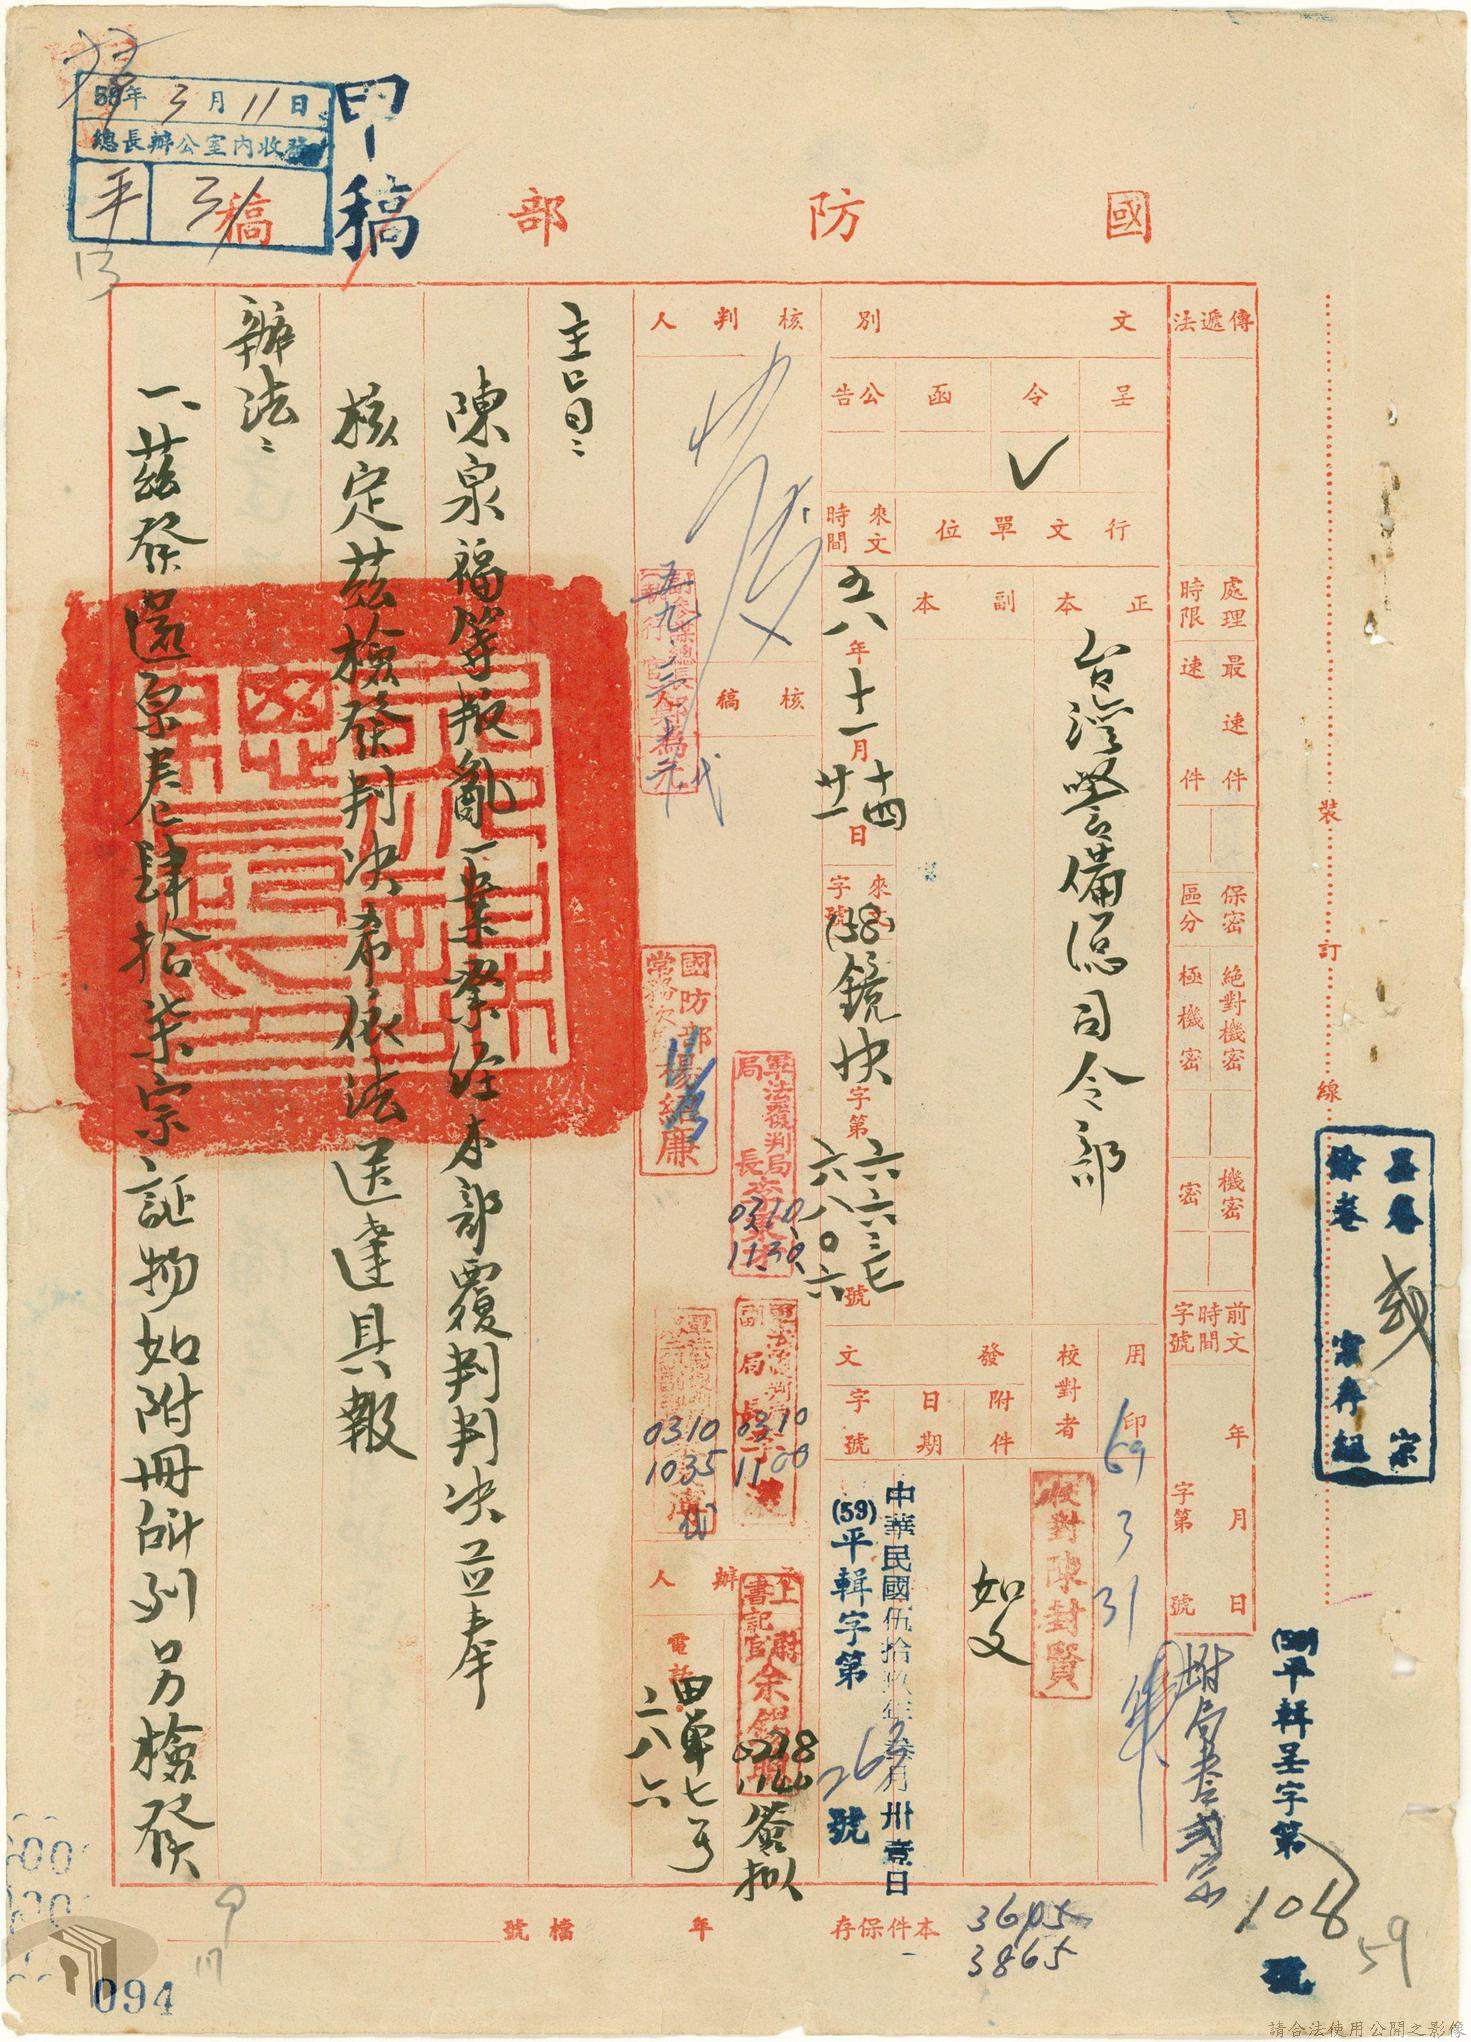 國防部稿
甲稿
59年3月11日
總長辦公室內收發
平 31
傳遞法
處理時限 最速件 速件
保密區分 絕對機密 極機密 機密 密
前文時間字號 年 月 日 字第 號
文別
呈 令 函 公告
✓
行文單位
正本 副本
台灣警備總司令部
來文時間
五八年十一月十四
廿一日
來文字號
(58)鏡快字第六六三七
六八〇六號
用印
59 3 31
校對者
校對陳封賢
發文
附件 日期 字號
如文
中華民國伍拾玖年叁月卅壹日
(59)平輯字第763號
核判人
核稿人
副參謀總長執行官
五九、三、
國防部常務次長楊紹廉
軍法覆判局局長
0310
1130
副局長
0310
1100
0310
1035
承辦人
上尉書記官余錫明
1140
簽擬
電話
二八六
主旨:
陳泉福等叛亂一案業經本部覆判判決並奉
核定茲檢發判決希依法送達具報
辦法:
一、茲發還原卷肆拾柒宗証物如附冊所列另檢發
裝訂線
附局卷貳宗
(59)平輯呈字第108號
本件保存 年 檔號
3605
3865
59
094
請合法使用公開之影像